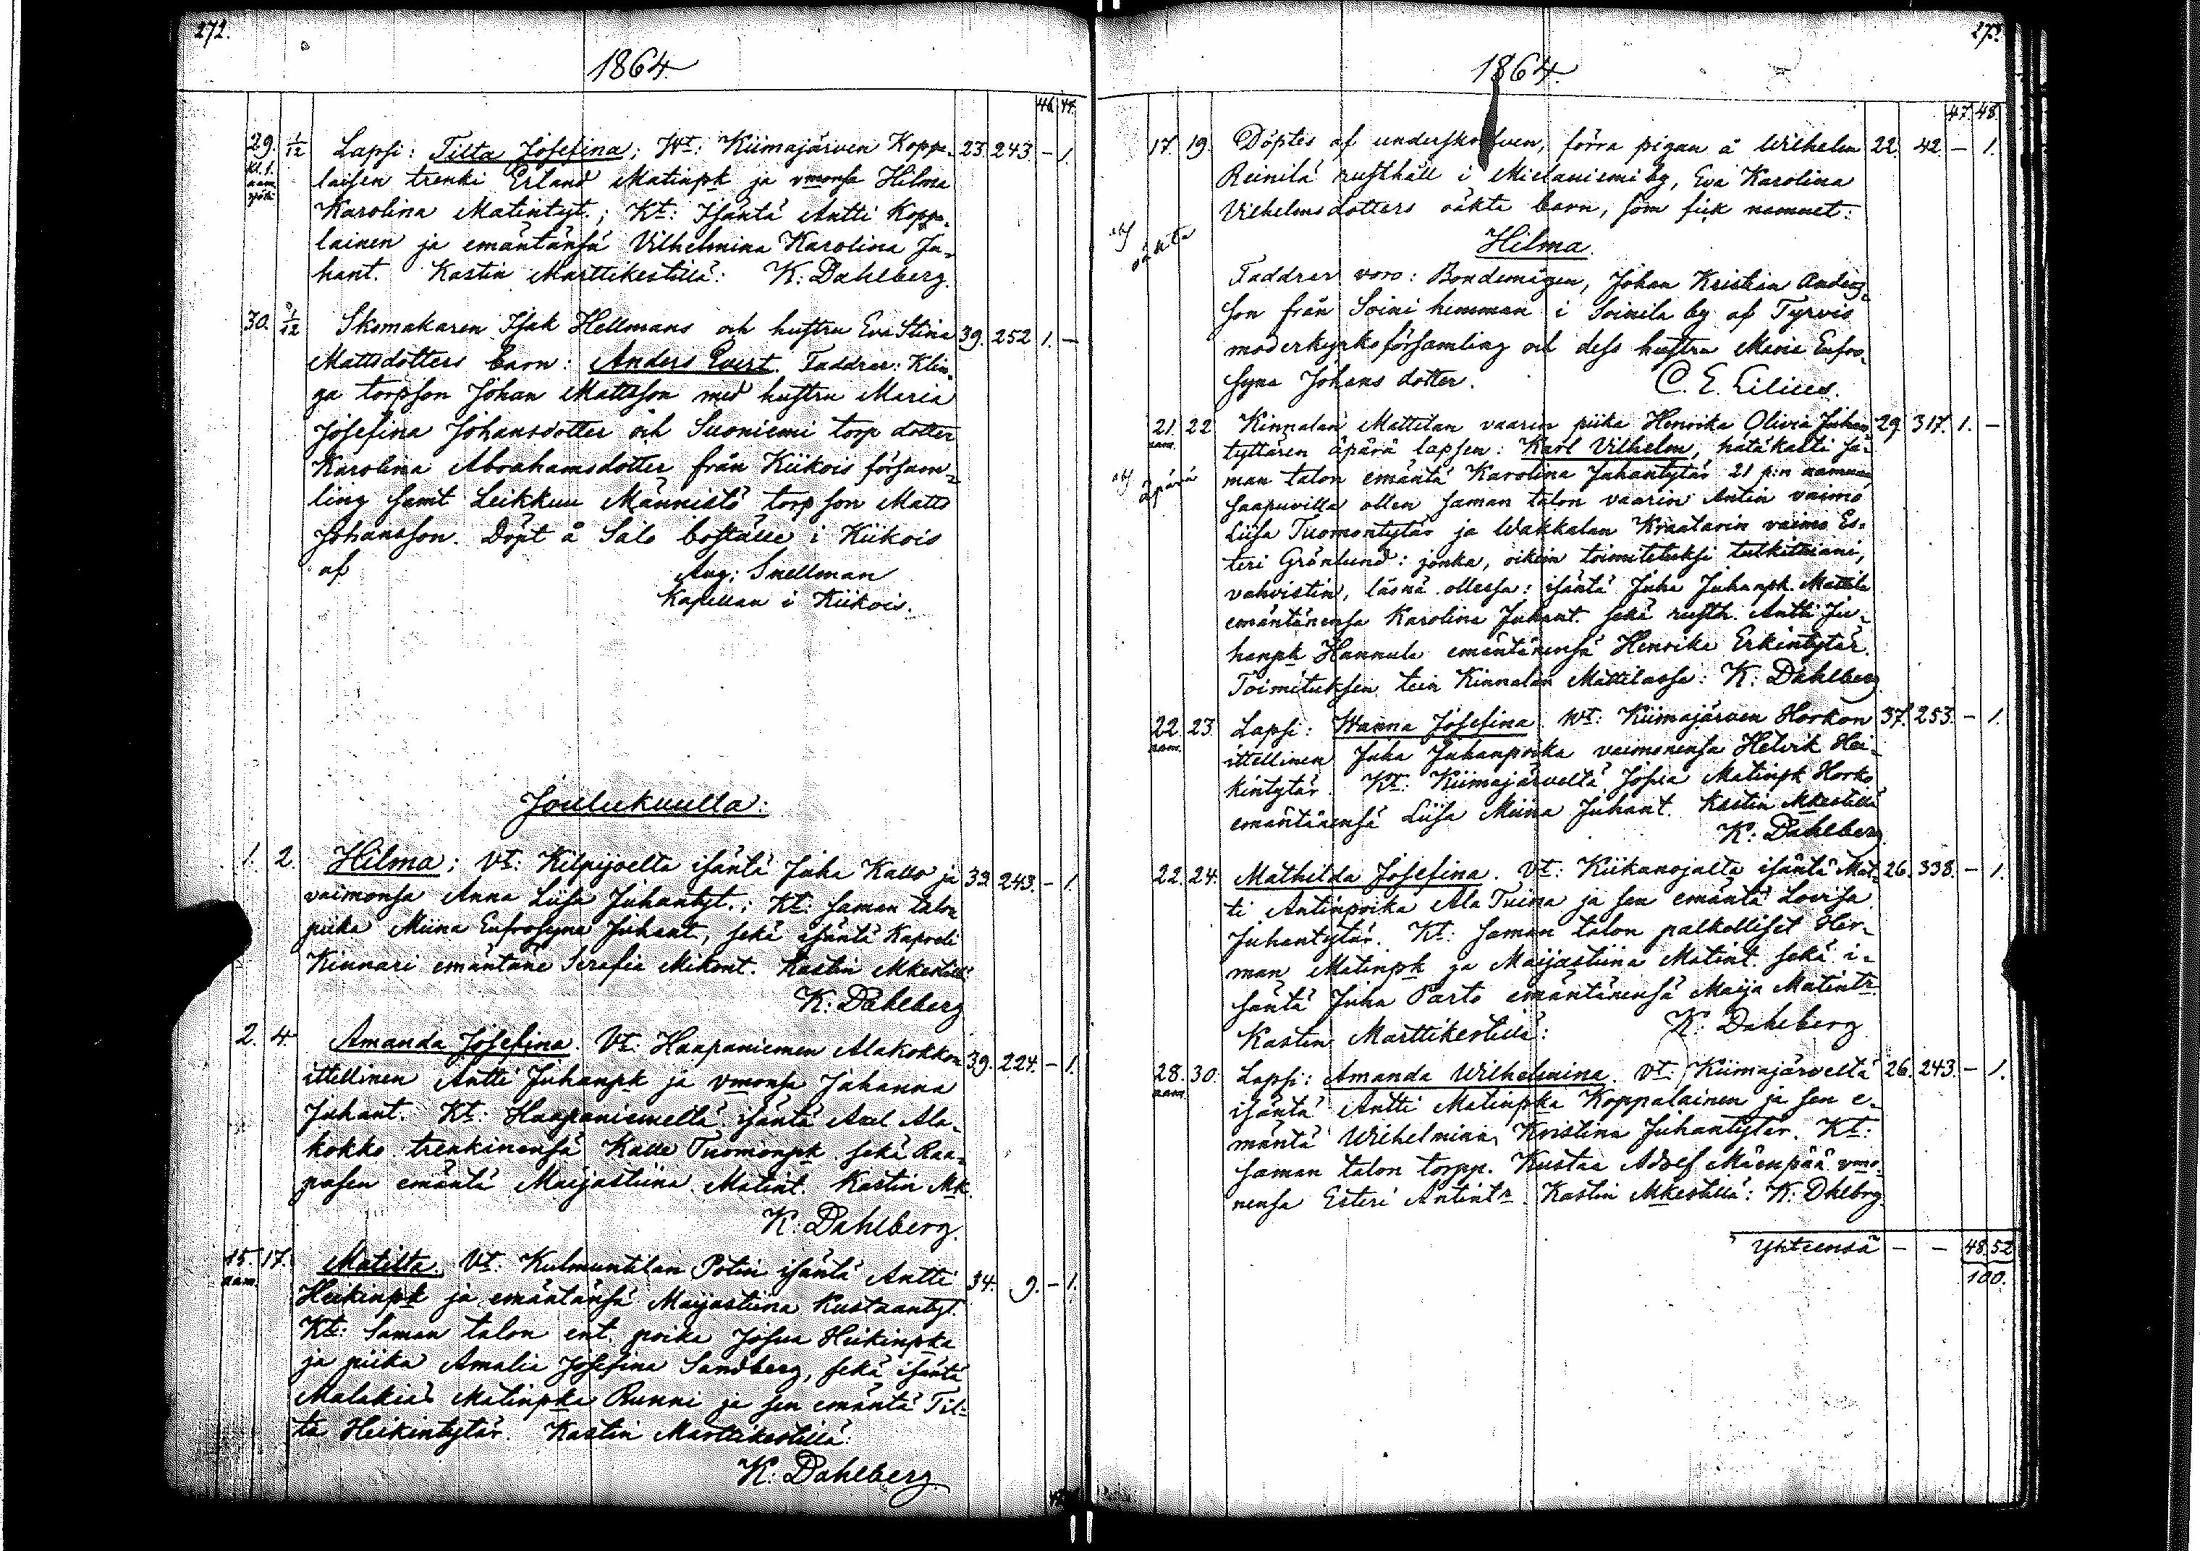 272.
1864
46. 44.
29. 1/12 Lapsi: Tilta Josefina; Wt: Kiimajärven Koppa- 23. 243. – 1.
kl. 1. aam. yöllä
laisen trenki Erland Matinpk ja vmonsa Hilma
Karolina Matintyt.; Kt: Isäntä Antti Koppa-
lainen ja emäntänsä Vilhelmina Karolina Ju-
hant. Kastin Marttikestillä: K: Dahlberg.
30. 1/12 Skomakaren Isak Hellmans och hustru Eva Stina 39. 252 1. –
Mattsdotters barn: Anders Evert. Faddrar: Klin-
ga torpson Johan Mattsson med hustru Maria
Josefina Johansdotter och Suoniemi torp dotter
Karolina Abrahamsdotter från Kiikois försam-
ling samt Leikkuu Männistö torpson Matts
Johansson. Döpt å Salo boställe i Kiikois
af Aug: Snellman
Kapellan i Kiikois.
Joulukuulla:
1. 2. Hilma; Vt: Kilpijoelta isäntä Juha Kallo ja 33. 243. – 1.
vaimonsa Anna Liisa Juhantyt.; Kt: saman talon
piika Miina Eufrosyna Juhant, sekä isäntä Kaproli
Kinnari emäntäne Serafia Mikont. Kastin Mkestillä
K: Dahlberg
2. 4. Amanda Josefina. Vt: Haapaniemen Alakokkon 39. 224. – 1.
ittellinen Antti Juhanpk ja vmonsa Johanna
Juhant. Kt: Haapaniemeltä isäntä Axel Ala-
kokko trenkinensä Kalle Tuomonpk sekä Raa-
pasen emäntä Maijastiina Matint. Kastin Mk.
K: Dahlberg.
15. 17. Matilta. Vt: Kulmuntilan Potin isäntä Antti 34. 9. – 1.
aam.
Heikinpk ja emäntänsä Maijastiina Kustaantyt.
Kt: Saman talon ent. poika Josua Heikinpka
ja piika Amalia Josefina Sandberg, sekä isäntä
Malakias Matinpka Runni ja sen emäntä Til-
ta Heikintytär. Kastin Marttikestillä:
K: Dahlberg
273.
1864.
47. 48.
17. 19. Döptes af underskrifven, förra pigan å Wilhelm 22. 42. – 1.
Reinilä rusthåll i Mietaniemi by, Eva Karolina
Vilhelmsdotters oäkta barn, som fick namnet:
oäkta
Hilma.
Faddrar voro: Bondemågen, Johan Kristian Anders-
son från Soini hemman i Soinila by af Tyrvis
moderkyrkoförsamling och dess hustru Maria Eufro-
syna Johans dotter. C. E. Lilius.
21. 22 Kinnalan Mattilan vaarin piika Henrika Olivia Juhan- 29. 317. 1. –
aam.
tyttären äpärä lapsen: Karl Vilhelm, hätäkasti sa-
äpärä
man talon emäntä Karolina Juhantytär 21 p:n aamuna
saapuvilla ollen saman talon vaarin Antin vaimo
Liisa Tuomontytär ja Wakkalan Kraatarin vaimo Es-
teri Grönlund: jonka, oikein toimitetuksi tutkittuani,
vahvistin, läsnä ollessa: isäntä Juha Juhanpk Mattila
emäntänensä Karolina Juhant. sekä rusth. Antti Ju-
hanpk Hannula emäntänensä Henrika Erkintytär.
Toimituksen tein Kinnalan Mattilassa: K: Dahlberg
22. 23. Lapsi: Wanna Josefina. Wt: Kiimajärven Horkon 37. 253. – 1.
aam.
ittellinen Juha Juhanpoika vaimonensa Helvik Hei-
kintytär. Kt: Kiimajärveltä Josua Matinpk Horko
emäntänensä Liisa Miina Juhant. Kastin Mkestillä
K: Dahlberg
22. 24. Mathilda Josefina. Vt: Kiikanojalta isäntä Mat- 26. 338. – 1.
ti Antinpoika Ala Tuina ja sen emäntä Lovisa
Juhantytär. Kt: saman talon palkolliset Her-
man Matinpk ja Maijastiina Matint. sekä i-
säntä Juha Parto emäntänensä Maija Matintr.
Kastin Marttikestillä: K: Dahlberg
28. 30. Lapsi: Amanda Wilhelmina. Vt: Kiimajärveltä 26. 243. – 1.
aam.
isäntä Antti Matinpka Koppalainen ja sen e-
mäntä Wilhelmina Kristina Juhantytär. Kt:
saman talon torpp. Kustaa Adolf Mäenpää vmo-
nensa Esteri Antintr. Kastin Mkestillä: K: Dhlbrg.
Yhteensä – – 48. 52
100.